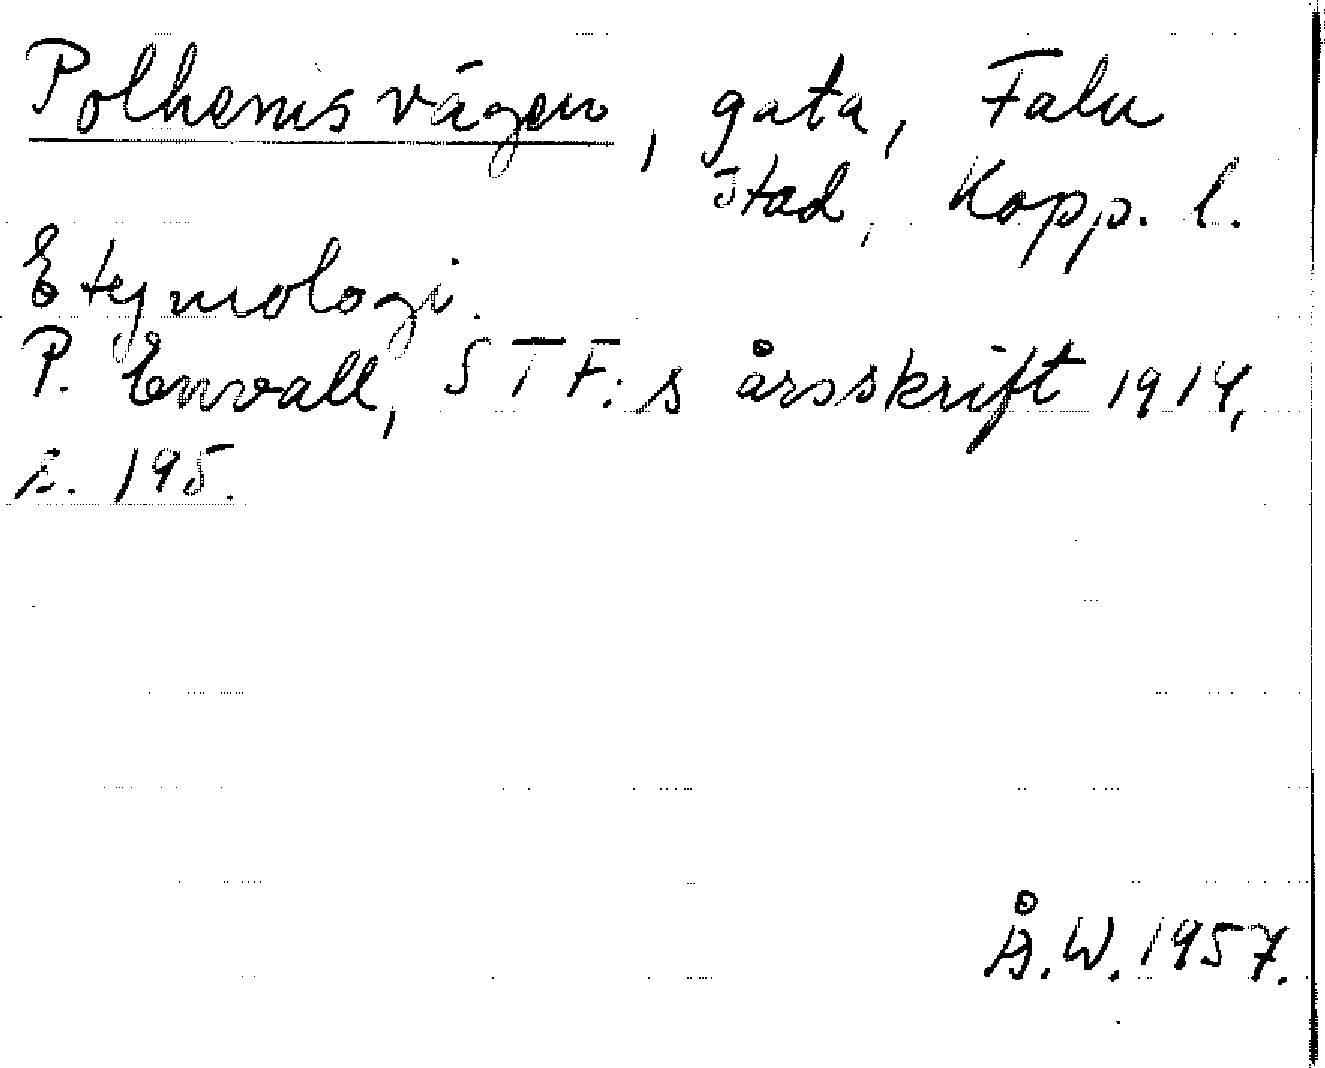 Polhemsvägen, gata, Falu
stad, Kopp. l.
Etymologi.
P. Envall, STF:s årsskrift 1914,
s. 195.
Å.W. 1957.